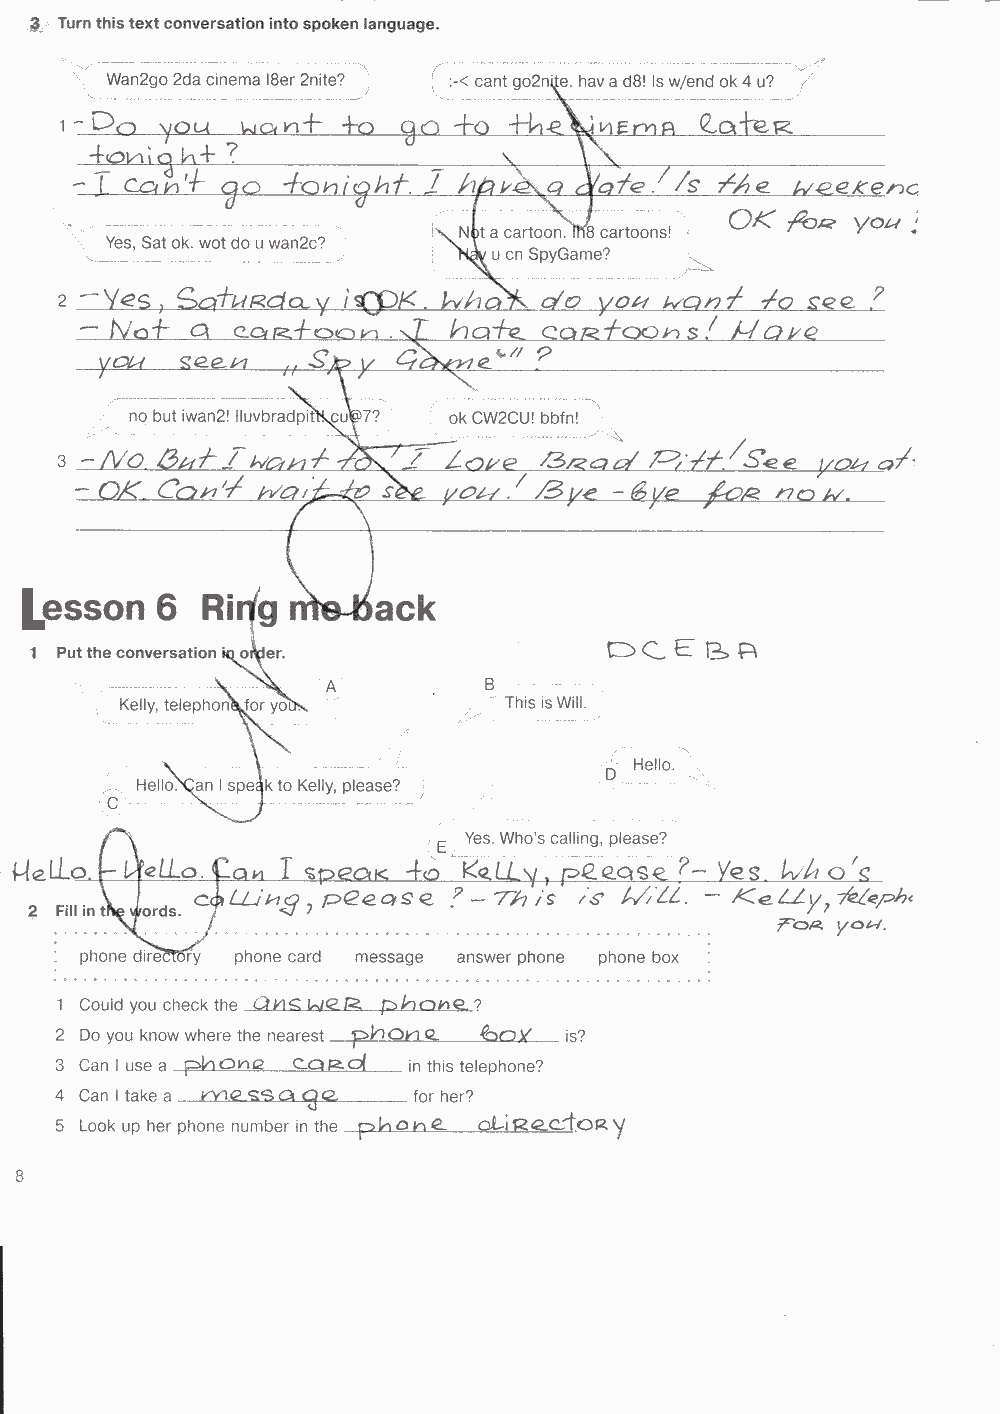 3 Turn this text conversation into spoken language.
Wan2go 2da cinema l8er 2nite?
:-< cant go2nite. hav a d8! Is w/end ok 4 u?
1 - Do you want to go to the cinema later
tonight?
- I can't go tonight. I have a date! Is the weekend
OK for you
Yes, Sat ok. wot do u wan2c?
Not a cartoon. Ih8 cartoons!
Hav u cn SpyGame?
2 - Yes, Saturday is OK. What do you want to see?
- Not a cartoon. I hate cartoons! Have
you seen „Spy Game" ?
no but iwan2! Iluvbradpitt! cu@7?
ok CW2CU! bbfn!
3 - No. But I want to! I Love Brad Pitt! See you at
- OK. Can't wait to see you! Bye-bye for now.
Lesson 6 Ring me back
1 Put the conversation in order.
DCEBA
A
Kelly, telephone for you.
B
This is Will.
Hello. Can I speak to Kelly, please?
C
Hello.
D
Yes. Who's calling, please?
E
Hello. - Hello. Can I speak to Kelly, please? - Yes. Who's
calling, please? - This is Will. - Kelly, telepho
for you.
2 Fill in the words.
phone directory phone card message answer phone phone box
1 Could you check the answer phone?
2 Do you know where the nearest phone box is?
3 Can I use a phone card in this telephone?
4 Can I take a message for her?
5 Look up her phone number in the phone directory
8